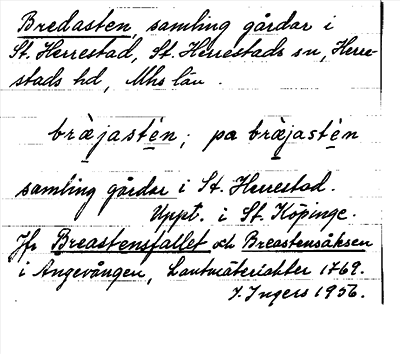 Bredasten, samling gårdar i
St. Herrestad, St. Herrestads sn, Herre-
stads hd, Mhs län.
bràjastén; pa bràjastén
samling gårdar i St. Herrestad.
Uppt. i St. Köpinge.
Jfr Breastensfallet och Breastensåksen
i Ängevången, Lantmäteriakter 1769.
I. Ingers 1956.